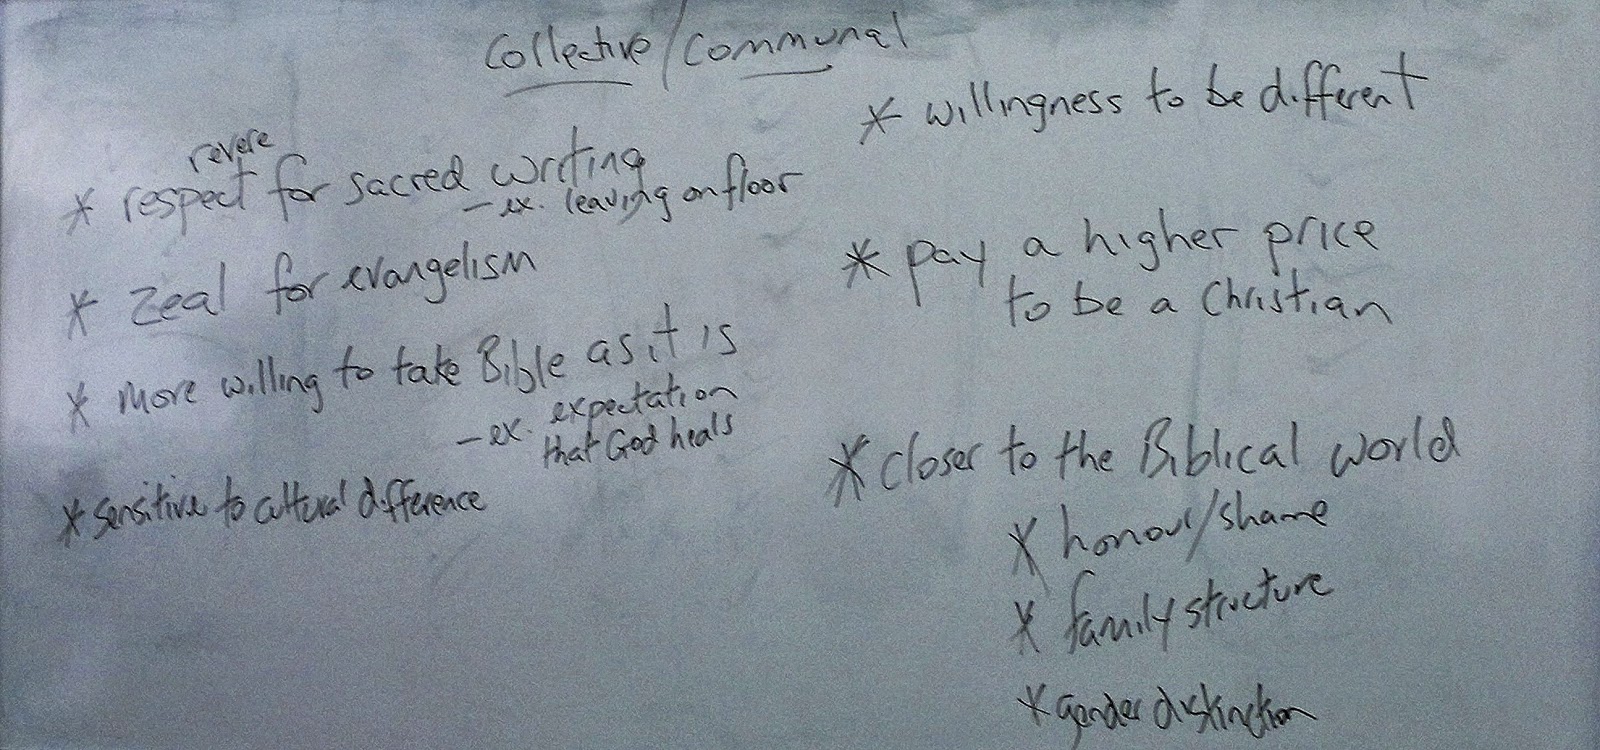 Collective/Communal
revere
* respect for sacred writing
- ex. leaving on floor
* zeal for evangelism
* more willing to take Bible as it is
- ex. expectation
that God heals
* sensitive to cultural difference
* willingness to be different
* pay a higher price
to be a Christian
* closer to the Biblical world
* honour/shame
* family structure
* gender distinction